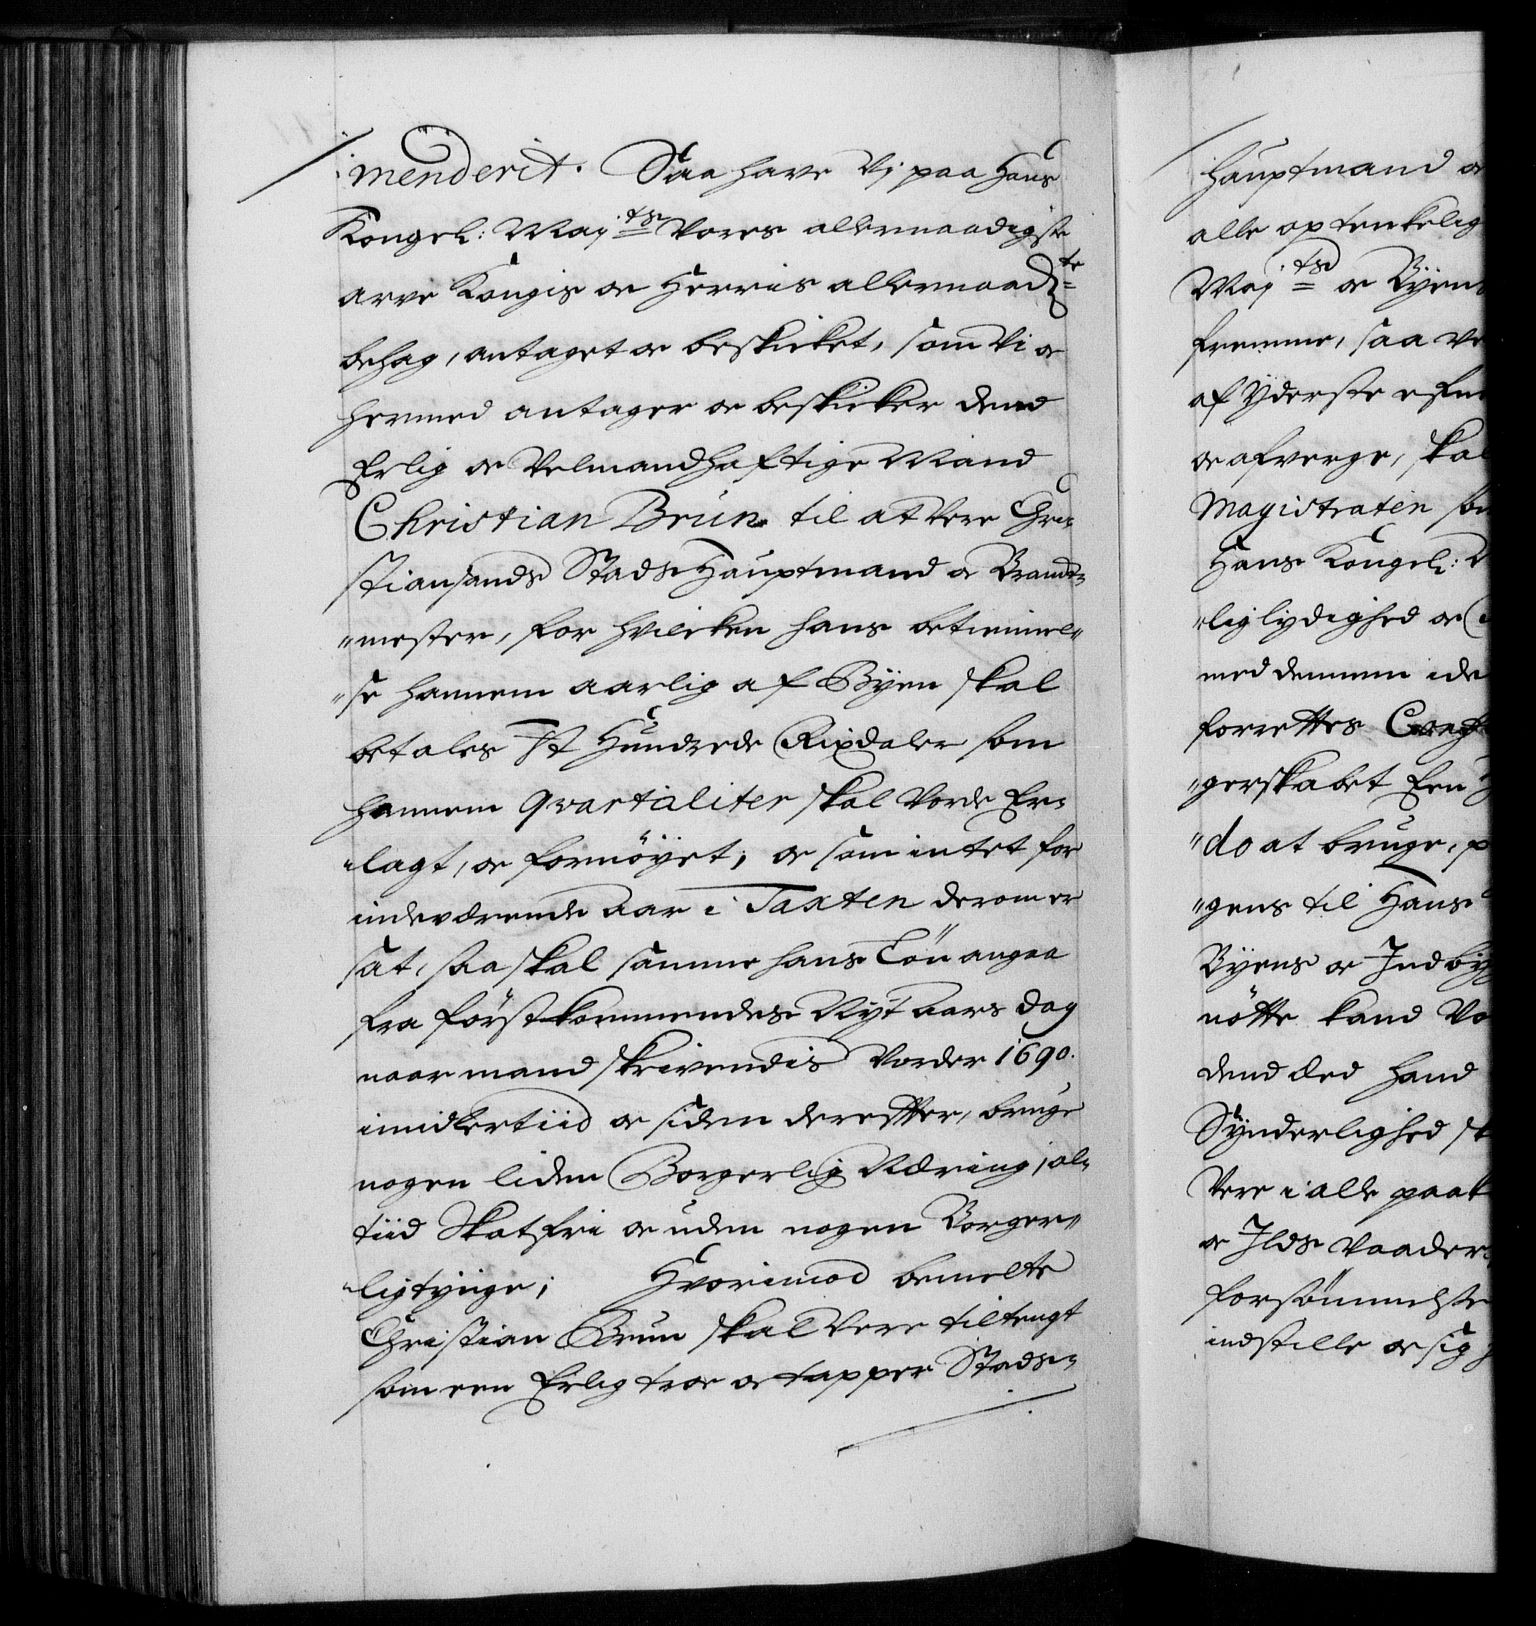 menderit. Saa have Vj paa Hans
Kongel: May:ts Vores allernaadigste
arve Kongis oc Herris allernaadte
behag, antaget oc beskicket, som Vi oc
hermed antager oc beskicker dend
Erlig oc Velmandhaftige Mand
Christian Brun til at Vere Chri-
stiansands Stads Hauptmand oc Brand-
mester, for hvilcken hans betiennel-
se hannem aarlig af Byen skal
betales It Hundrede Rixdaler som
hannem qvartaliter skal Vorde Er-
lagt, oc fornöyet; oc som intet for
indeværende aar i Taxten derom er
sat, saa skal samme hans Lön angaa
fra förstkommendes Nyt aars dag
naar mand skrivendis Vorder 1690.
imidlertiid oc siden derefter, bruge
nogen liden Borgerlig Næring, al-
tiid Skatfri oc uden nogen Borger-
lig tynge; Hvorimod bemelte
Christian Brun skal Vere tiltengt
som een Erlig troe oc tapper Stads-
Hauptmand oc
alle optenkelig
May:ts oc Byens
fremme, saa ve
af Yderste
oc afverge, skal
Magistraten som
Hans Kongel:
lig lydighed oc
med dennem i de
forrettes
gerskabet Een
do at bruge,
gens til Hans
Byens oc Indby
nötte kand Vo
dend Eed hand
Synderlighed sk
Vere i alle paak
oc Ilds Vaader
forsömmelse
indstille oc sig